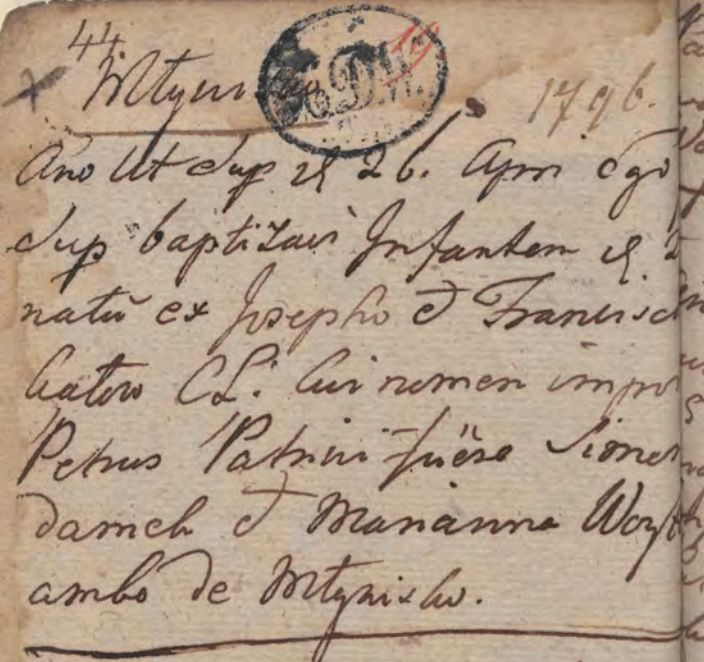 44
19
1796.
Ano Ut Sup d 26. Apri Ego
Sup baptizavi Infantem d
natū ex Josepho et Francisc
CL: Cui nomen impo
Petrus Patrini fuëre
et Marianna Woyt
ambo de Młynisko.